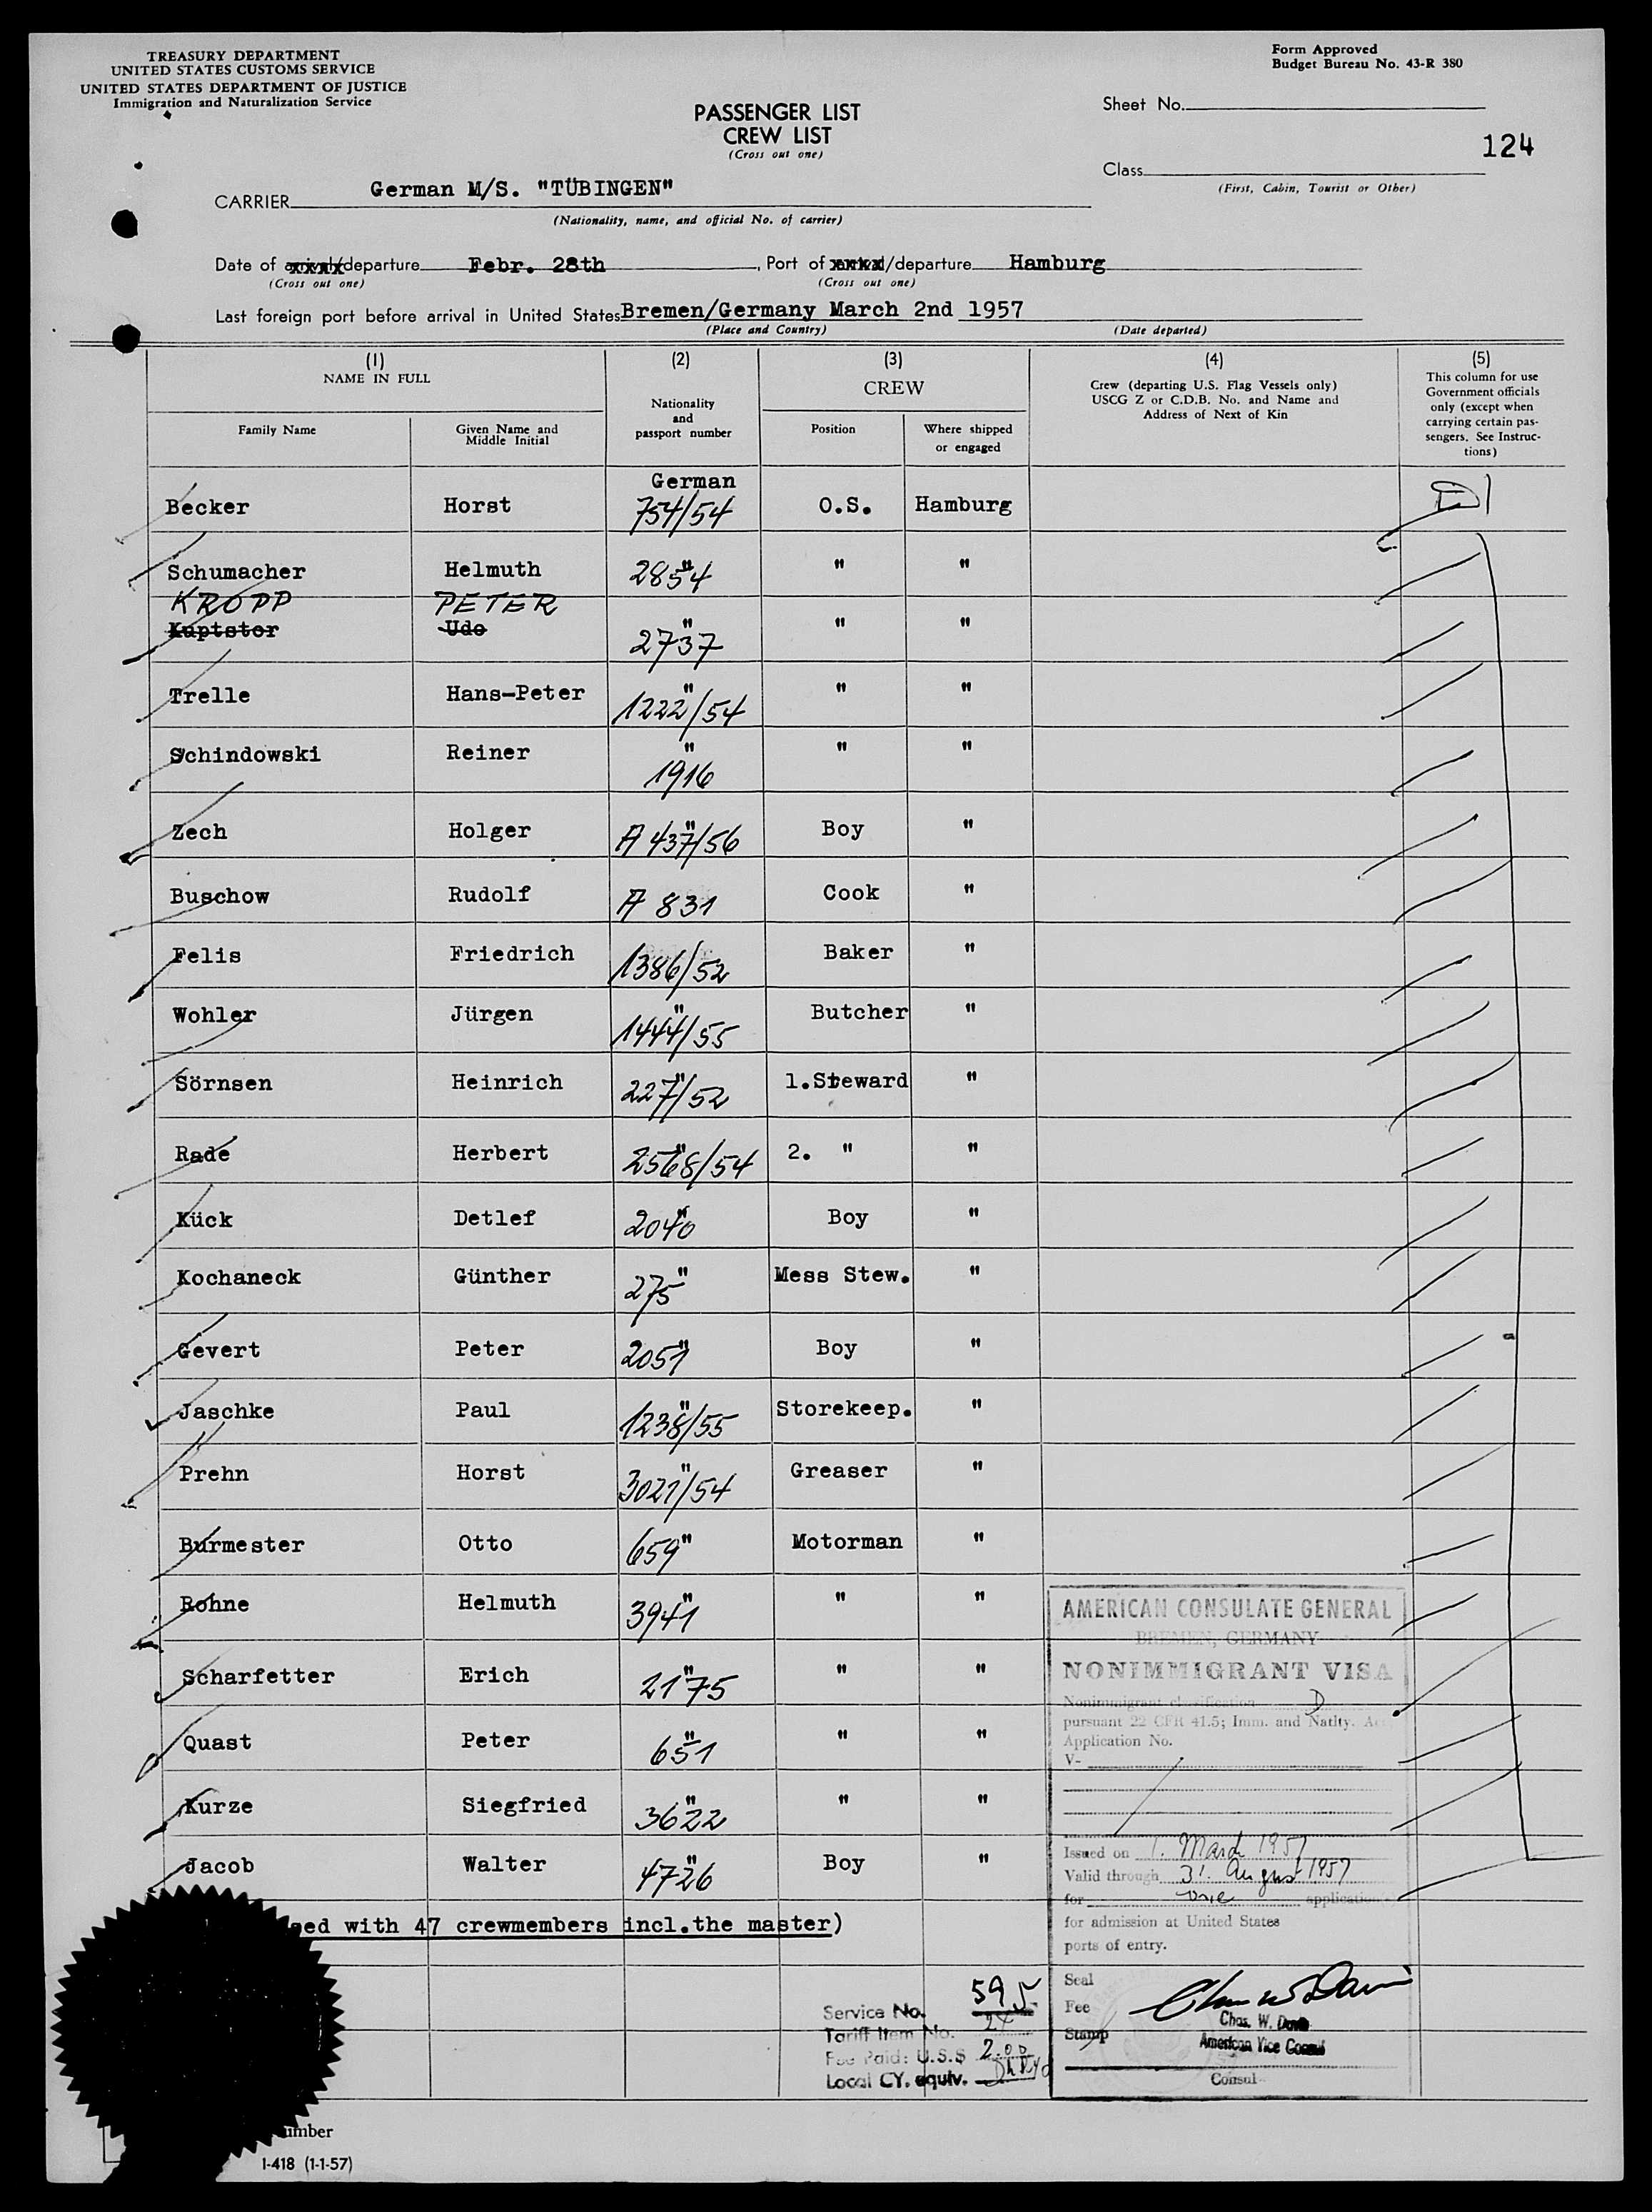 TREASURY DEPARTMENT
UNITED STATES CUSTOMS SERVICE
UNITED STATES DEPARTMENT OF JUSTICE
Immigration and Naturalization Service
Form Approved
Budget Bureau No. 43-R 380
PASSENGER LIST
CREW LIST
(Cross out one)
Sheet No.
124
Class
(First, Cabin, Tourist or Other)
CARRIER German M/S. "TÜBINGEN"
(Nationality, name, and official No. of carrier)
Date of arrival/departure Febr. 28th, Port of xxxx/departure Hamburg
(Cross out one) (Cross out one)
Last foreign port before arrival in United States Bremen/Germany March 2nd 1957
(Place and Country) (Date departed)
(1) (2) (3) (4) (5)
NAME IN FULL
Family Name
Given Name and Middle Initial
Nationality and passport number
CREW
Position
Where shipped or engaged
Crew (departing U.S. Flag Vessels only)
USCG Z or C.D.B. No. and Name and
Address of Next of Kin
This column for use
Government officials
only (except when
carrying certain pas-
sengers. See Instruc-
tions)
German
Becker Horst 754/54 O.S. Hamburg
Schumacher Helmuth " 2854 " "
KROPP PETER
Kuptstor Udo " 2737 " "
Trelle Hans-Peter " 1222/54 " "
Schindowski Reiner " 1916 " "
Zech Holger " A 437/56 Boy "
Buschow Rudolf A 831 Cook "
Felis Friedrich 1386/52 Baker "
Wohler Jürgen " 1444/55 Butcher "
Sörnsen Heinrich " 227/52 1.Steward "
Rade Herbert " 2568/54 2. " "
Kück Detlef " 2040 Boy "
Kochaneck Günther 275 " Mess Stew. "
Gevert Peter 2051 " Boy "
Jaschke Paul " 1238/55 Storekeep. "
Prehn Horst " 3021/54 Greaser "
Burmester Otto 659 " Motorman "
Rohne Helmuth " 3941 " "
Scharfetter Erich " 2175 " "
Quast Peter " 651 " "
Kurze Siegfried " 3622 " "
Jacob Walter " 4726 Boy "
sed with 47 crewmembers incl.the master)
AMERICAN CONSULATE GENERAL
BREMEN, GERMANY
NONIMMIGRANT VISA
Nonimmigrant classification D
pursuant 22 CFR 41.5; Imm. and Natlty. Act
Application No.
V-
Issued on 1. March 1957
Valid through 31. August 1957
for one application
for admission at United States
ports of entry.
Seal
Fee
Stamp
Chas. W. Davis
American Vice Consul
Consul
Service No. 595
Tariff Item No. 24
Fee Paid: U.S.$ 2.00
Local CY. equiv.
umber
I-418 (1-1-57)